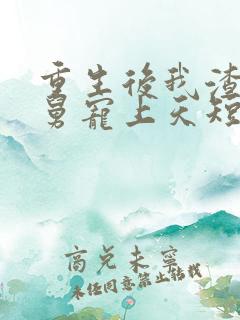 重生後我渣
舅寵上天短
商兌未寧
未經同意禁止轉載